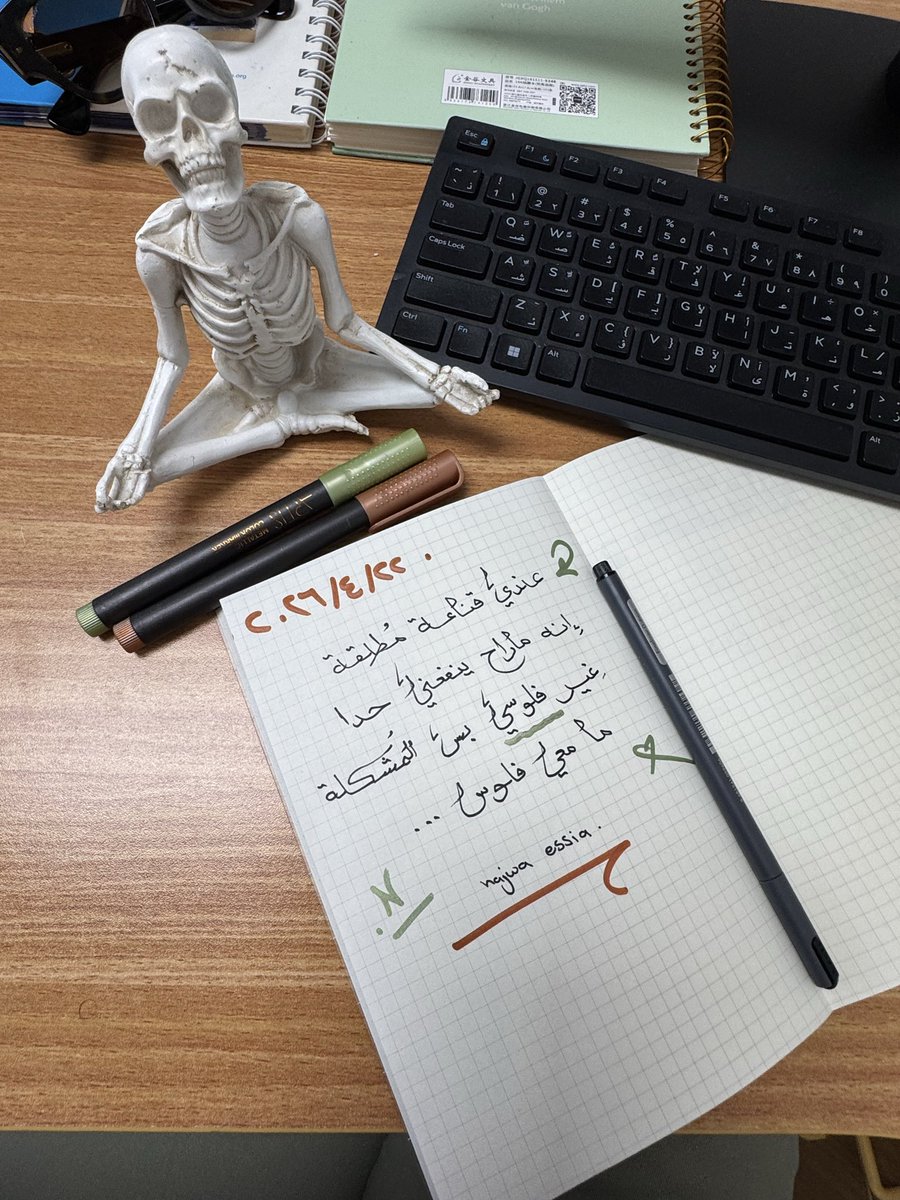 van Gogh
金谷文具
٢٠٢٦/٤/٢٢
عندي قناعة مُطلقة
إنه ماراح ينفعني حدا
غير فلوسي بس المُشكلة
ما معي فلوس ...
najwa essia.
N.
METALLIC
Esc
F1
F2
F3
F4
F5
F6
F7
F8
Tab
Caps Lock
Shift
Ctrl
Fn
Alt
Alt